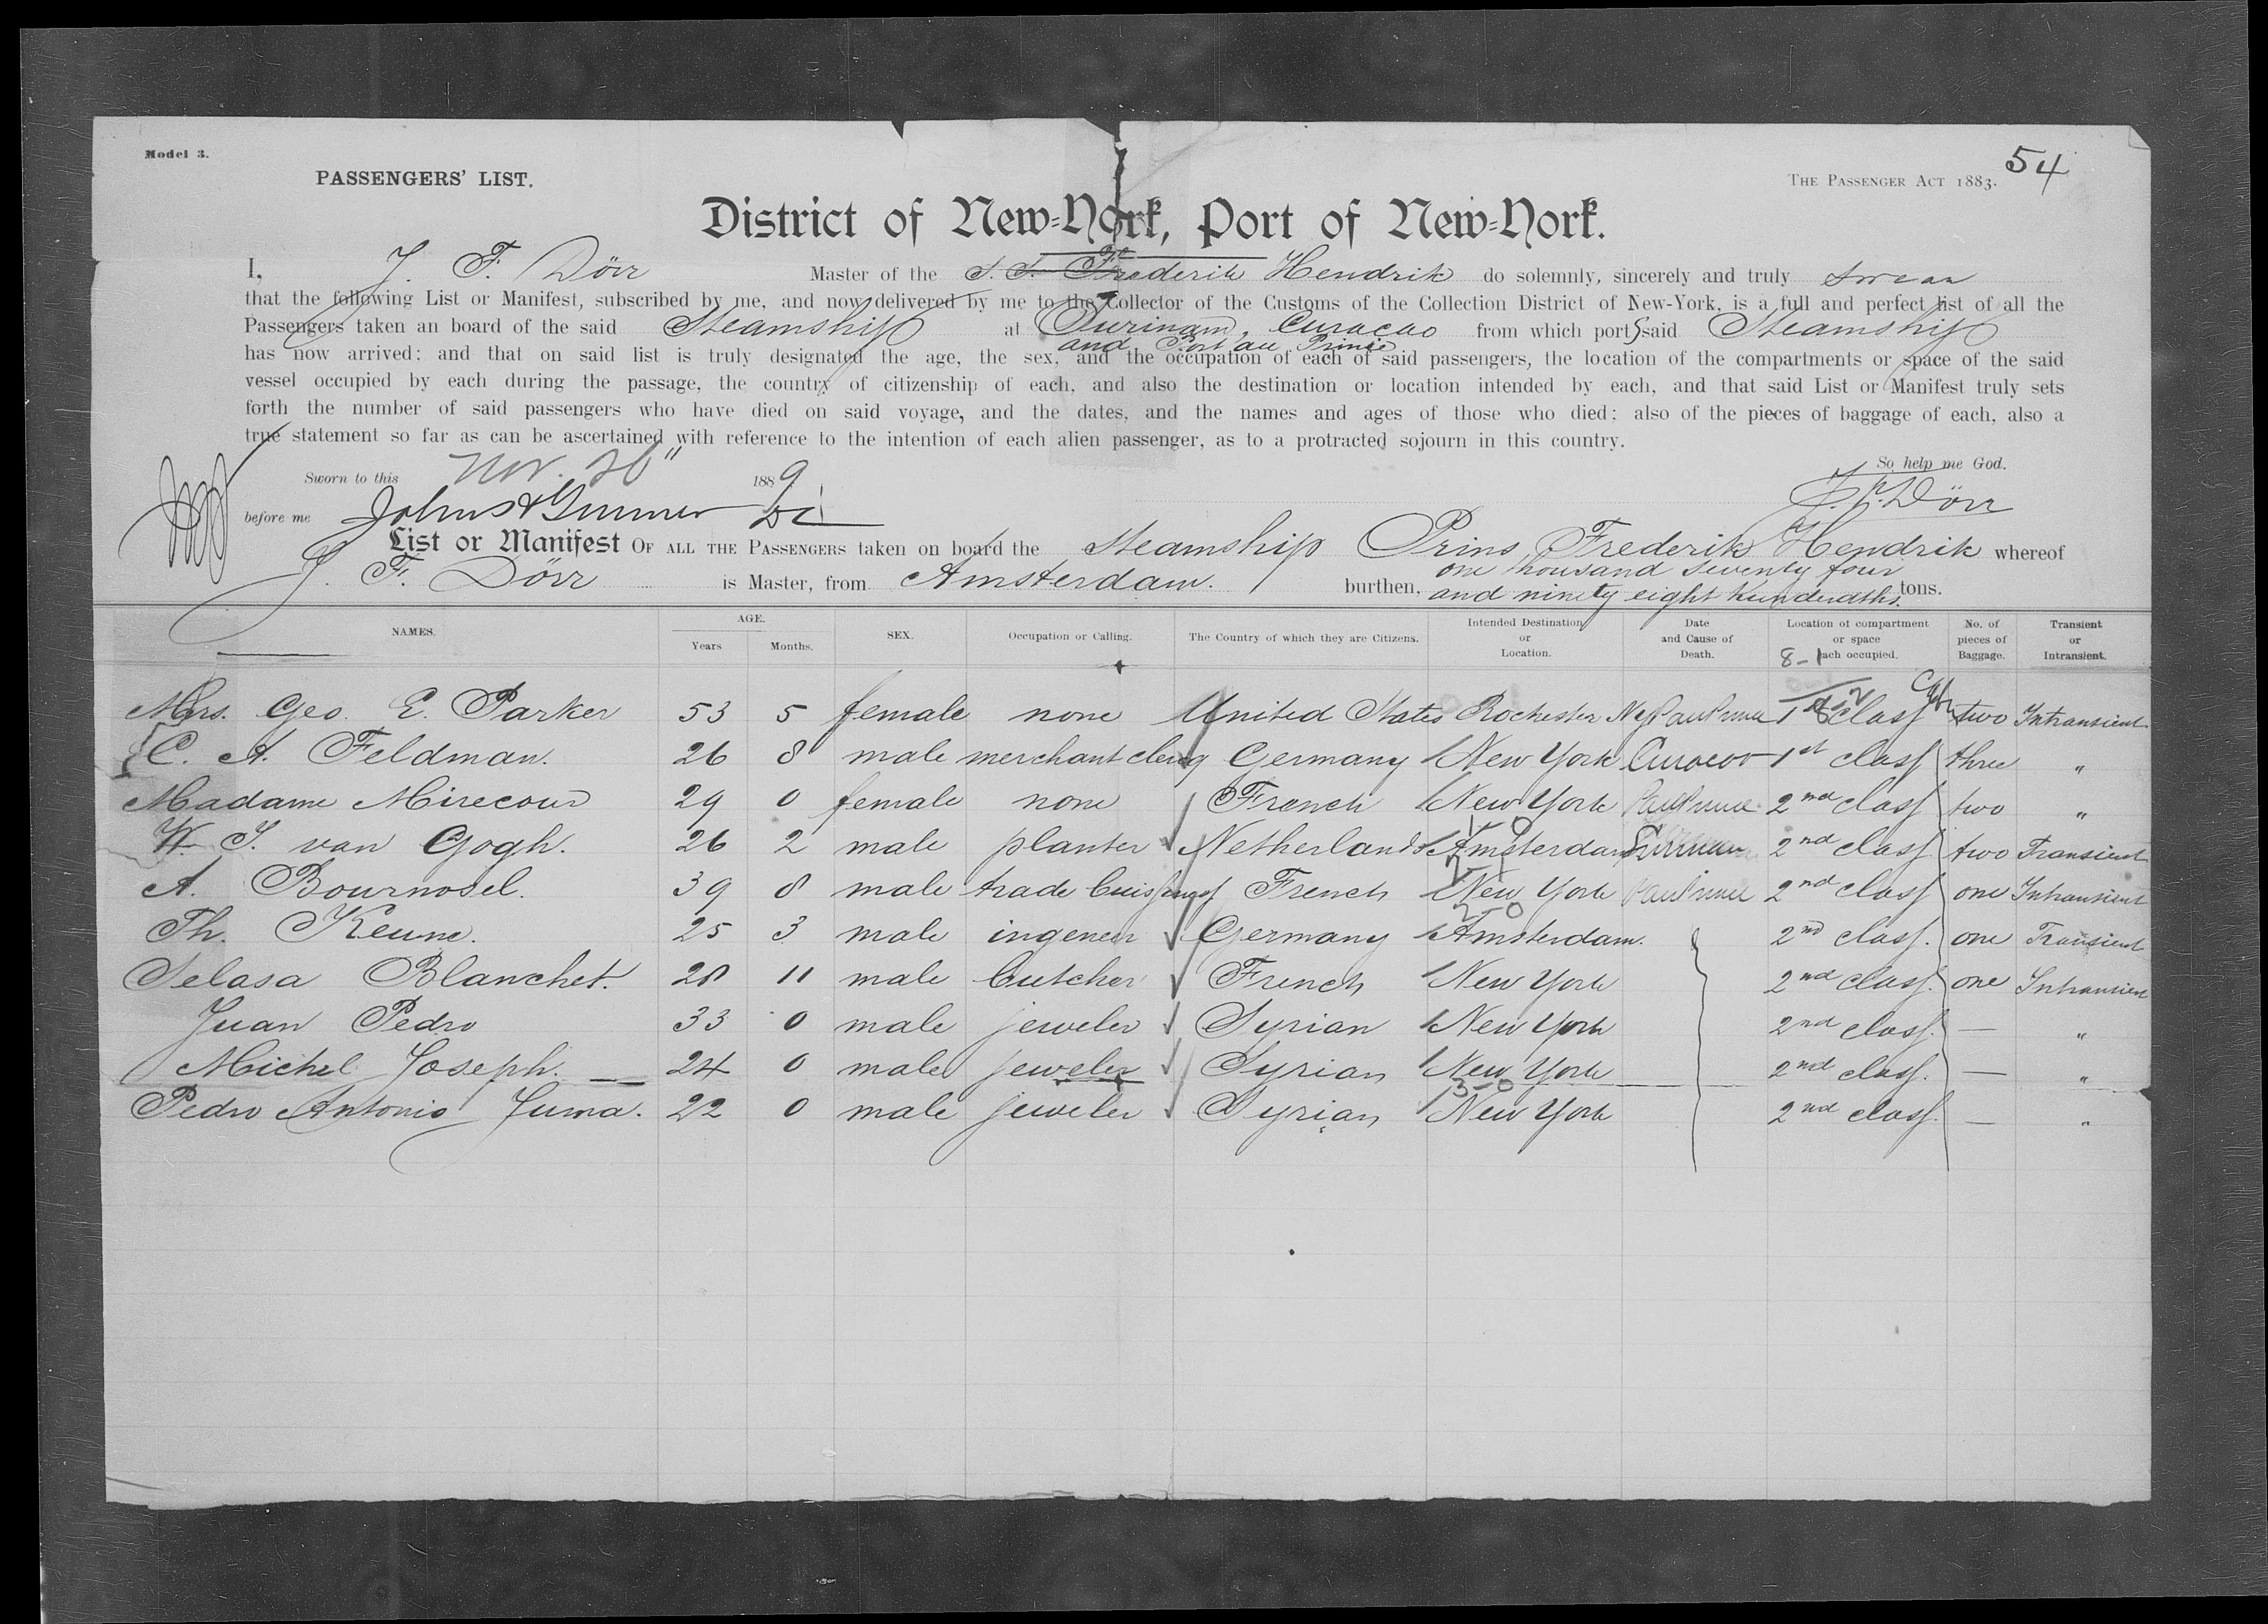 Model 3.
54
PASSENGERS' LIST.
THE PASSENGER ACT 1883.
District of New-York, Port of New-York.
I, J. F. Dörr Master of the S. S. Frederik Hendrik do solemnly, sincerely and truly swear
that the following List or Manifest, subscribed by me, and now delivered by me to the Collector of the Customs of the Collection District of New-York, is a full and perfect list of all the
Passengers taken an board of the said Steamship at Surinam, Curaçao from which port said Steamship
and Port au Prince
has now arrived: and that on said list is truly designated the age, the sex, and the occupation of each of said passengers, the location of the compartments or space of the said
vessel occupied by each during the passage, the country of citizenship of each, and also the destination or location intended by each, and that said List or Manifest truly sets
forth the number of said passengers who have died on said voyage, and the dates, and the names and ages of those who died: also of the pieces of baggage of each, also a
true statement so far as can be ascertained with reference to the intention of each alien passenger, as to a protracted sojourn in this country.
So help me God.
Sworn to this Nov. 26" 1889
J. F. Dörr
before me
List or Manifest OF ALL THE PASSENGERS taken on board the Steamship Prins Frederik Hendrik whereof
J. F. Dörr is Master, from Amsterdam. burthen, one thousand seventy four
and ninety eight hunderdths. tons.
NAMES. AGE. Years Months. SEX. Occupation or Calling. The Country of which they are Citizens. Intended Destination or Location. Date and Cause of Death. Location of compartment or space each occupied. No. of pieces of Baggage. Transient or Intransient.
8-1
Mrs. Geo. E. Parker 53 5 female none United States Rochester NY 1st class two Intransient
C. A. Feldman. 26 8 male merchant clerq Germany New York Curacao 1st class three "
Madame Mirecour 29 0 female none French New York 2nd class two "
W. J. van Gogh. 26 2 male planter Netherlands Amsterdam Surinam 2nd class two Transient
A. Bournosel. 39 8 male trade French New York 2nd class one Intransient
2-0
Th. Keune. 25 3 male ingeneer Germany Amsterdam. 2nd class. one Transient
Selasa Blanchet. 28 11 male butcher French New York 2nd class. one Intransient
Juan Pedro 33 0 male jeweler Syrian New York 2nd class. — "
Michel Joseph. 24 0 male jeweler Syrian New York 2nd class. — "
3-0
Pedro Antonio Juma. 22 0 male jeweler Syrian New York 2nd class. — "